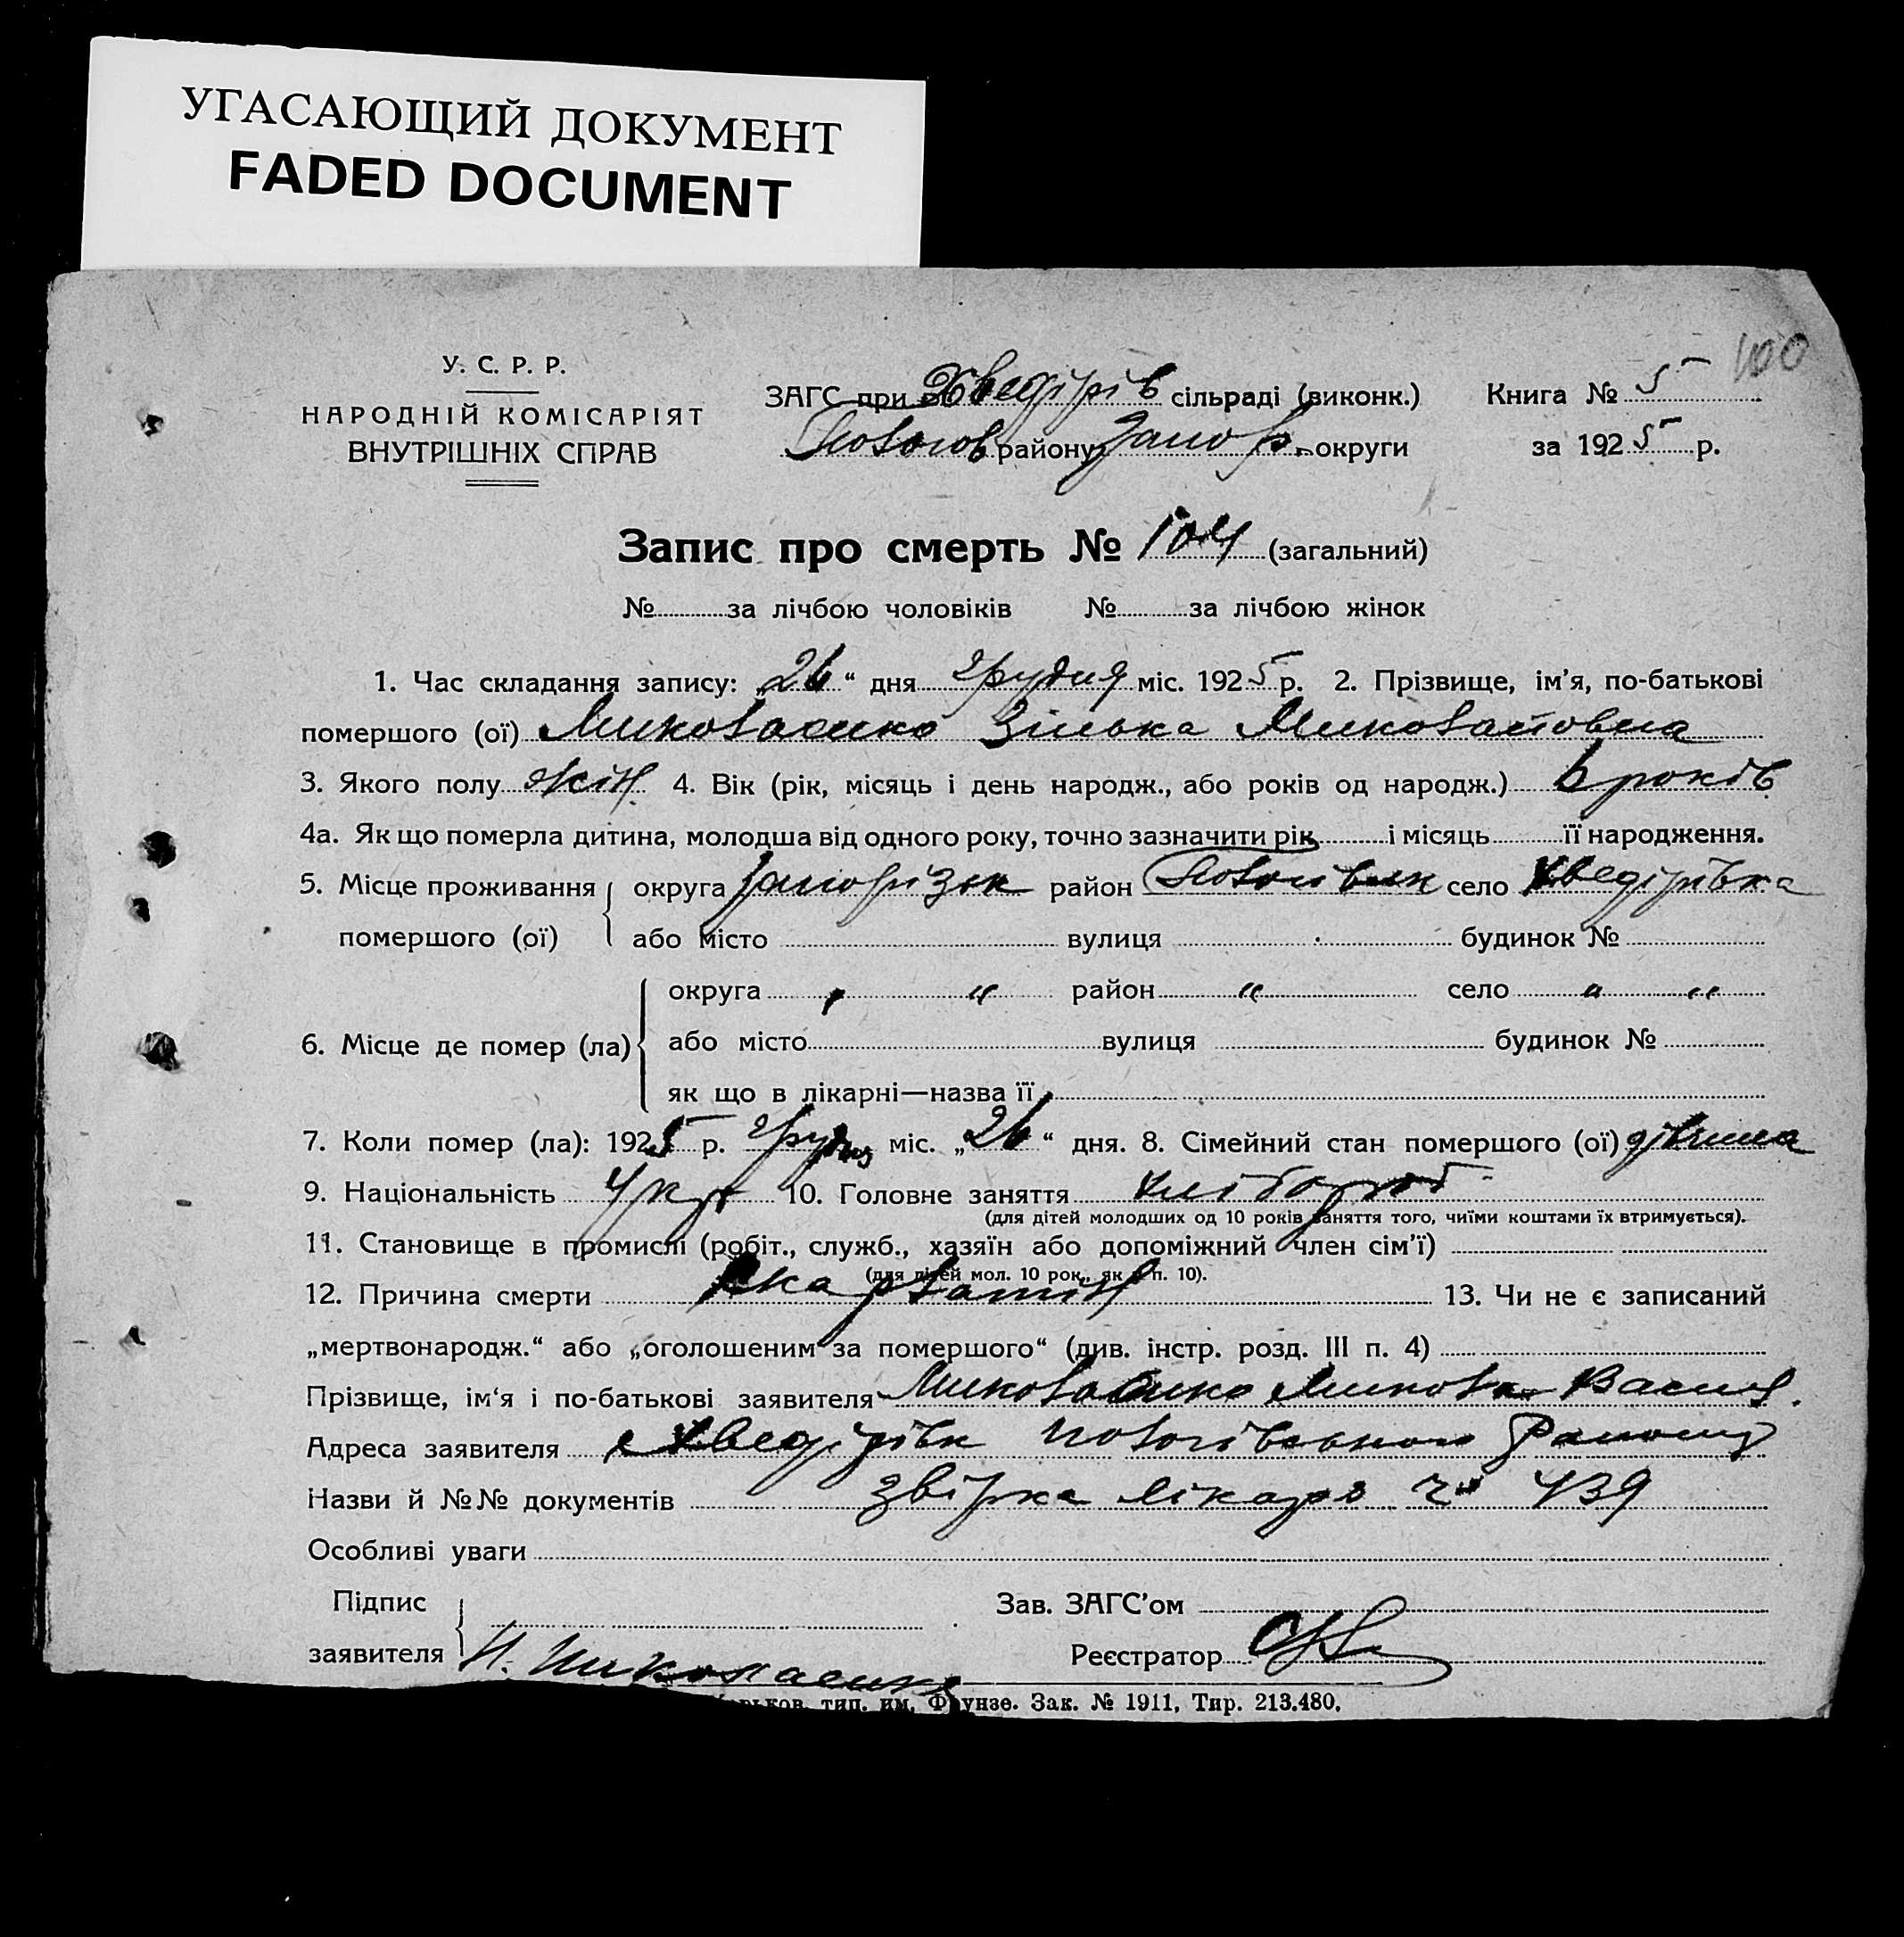 УГАСАЮЩИЙ ДОКУМЕНТ
FADED DOCUMENT
100
У. С. Р. Р.
НАРОДНІЙ КОМІСАРІЯТ
ВНУТРІШНІХ СПРАВ
ЗАГС при Хведірів сільраді (виконк.)
Пологов району Запор. округи
Книга № 5
за 1925 р.
Запис про смерть № 104 (загальний)
№ за лічбою чоловіків № за лічбою жінок
1. Час складання запису: „26“ дня грудня міс. 1925 р. 2. Прізвище, ім'я, по-батькові
помершого (ої) Миколаенко Зінька Миколаївна
3. Якого полу жін. 4. Вік (рік, місяць і день народж., або років од народж.) 6 років
4а. Як що померла дитина, молодша від одного року, точно зазначити рік і місяць її народження.
5. Місце проживання помершого (ої) округа Запорізьк район Пологівськ село Хведірівка
або місто вулиця будинок №
6. Місце де помер (ла) округа „ “ район “ село “ “
або місто вулиця будинок №
як що в лікарні—назва її
7. Коли помер (ла): 1925 р. грудня міс. „26“ дня. 8. Сімейний стан помершого (ої) дівчина
9. Національність Укр 10. Головне заняття хлібороб
(для дітей молодших од 10 років заняття того, чиїми коштами їх втримується).
11. Становище в промислі (робіт., служб., хазяїн або допоміжний член сім'ї)
(для дітей мол. 10 рок., як в п. 10).
12. Причина смерти скарлатин 13. Чи не є записаний
„мертвонародж.“ або „оголошеним за помершого“ (див. інстр. розд. III п. 4)
Прізвище, ім'я і по-батькові заявителя Миколаенко Микола Васил.
Адреса заявителя с Хведірівк Пологівського Району
Назви й №№ документів лікаря ч 439
Особливі уваги
Підпис заявителя Н. Николаенко
Зав. ЗАГС'ом
Реєстратор
Харьков. тип. им. Фрунзе. Зак. № 1911, Тир. 213.480.